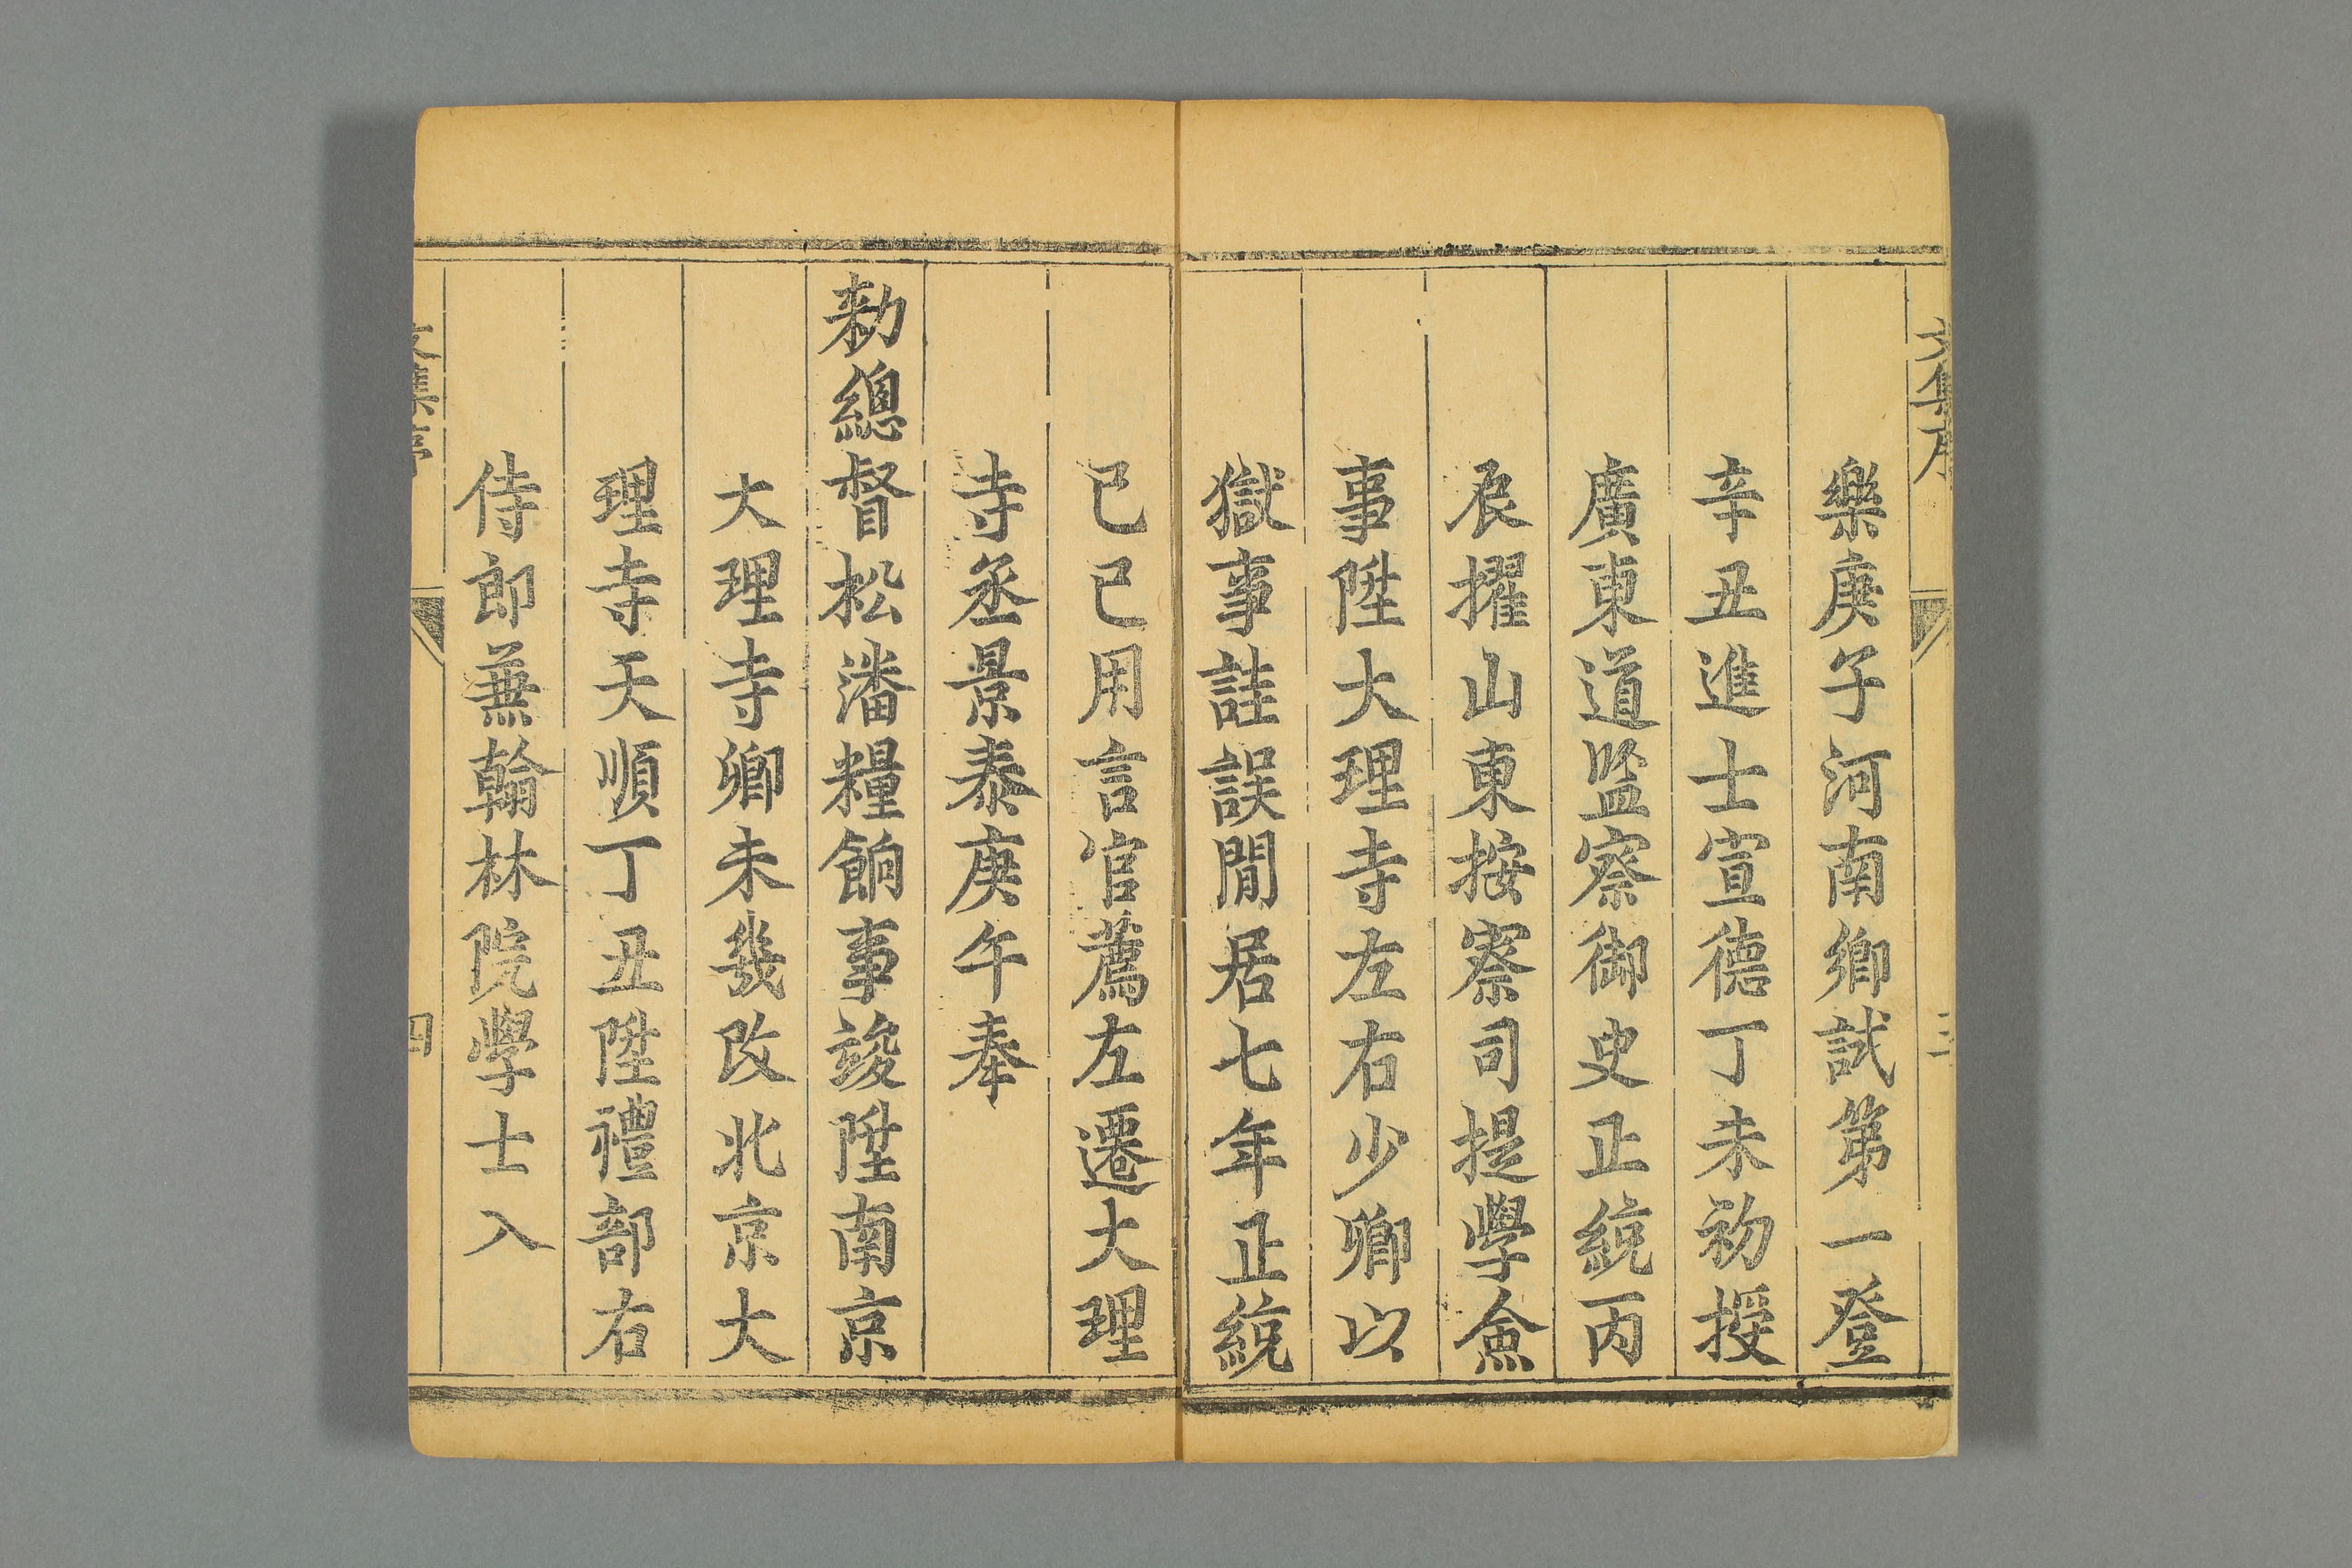 樂庚子河南鄉試第一登
辛丑進士宣德丁未初授
廣東道監察御史正統丙
辰擢山東按察司提學僉
事陞大理寺左右少卿以
獄事詿誤閒居七年正統
己巳用言官薦左遷大理
寺丞景泰庚午奉
勑總督松潘糧餉事竣陞南京
大理寺卿未幾改北京大
理寺天順丁丑陞禮部右
侍郎兼翰林院學士入